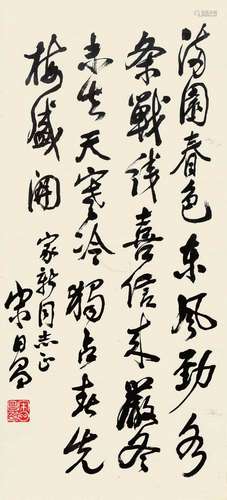 满園春色东风劲各
条戰线喜信来嚴冬
未尽天寒冷獨占春先
梅盛開
家新同志正
宋日昌